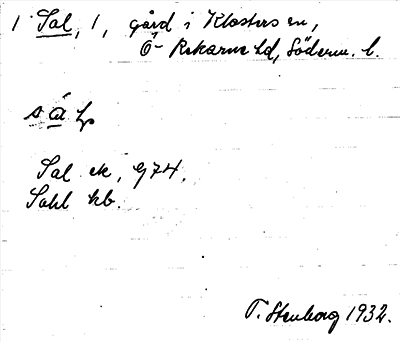 1 Sal, 1, gård i Klosters sn,
Ö. Rekarne hd, Söderm. l.
Sal ek, G74.
Sahl kb.
T. Stenborg 1932.